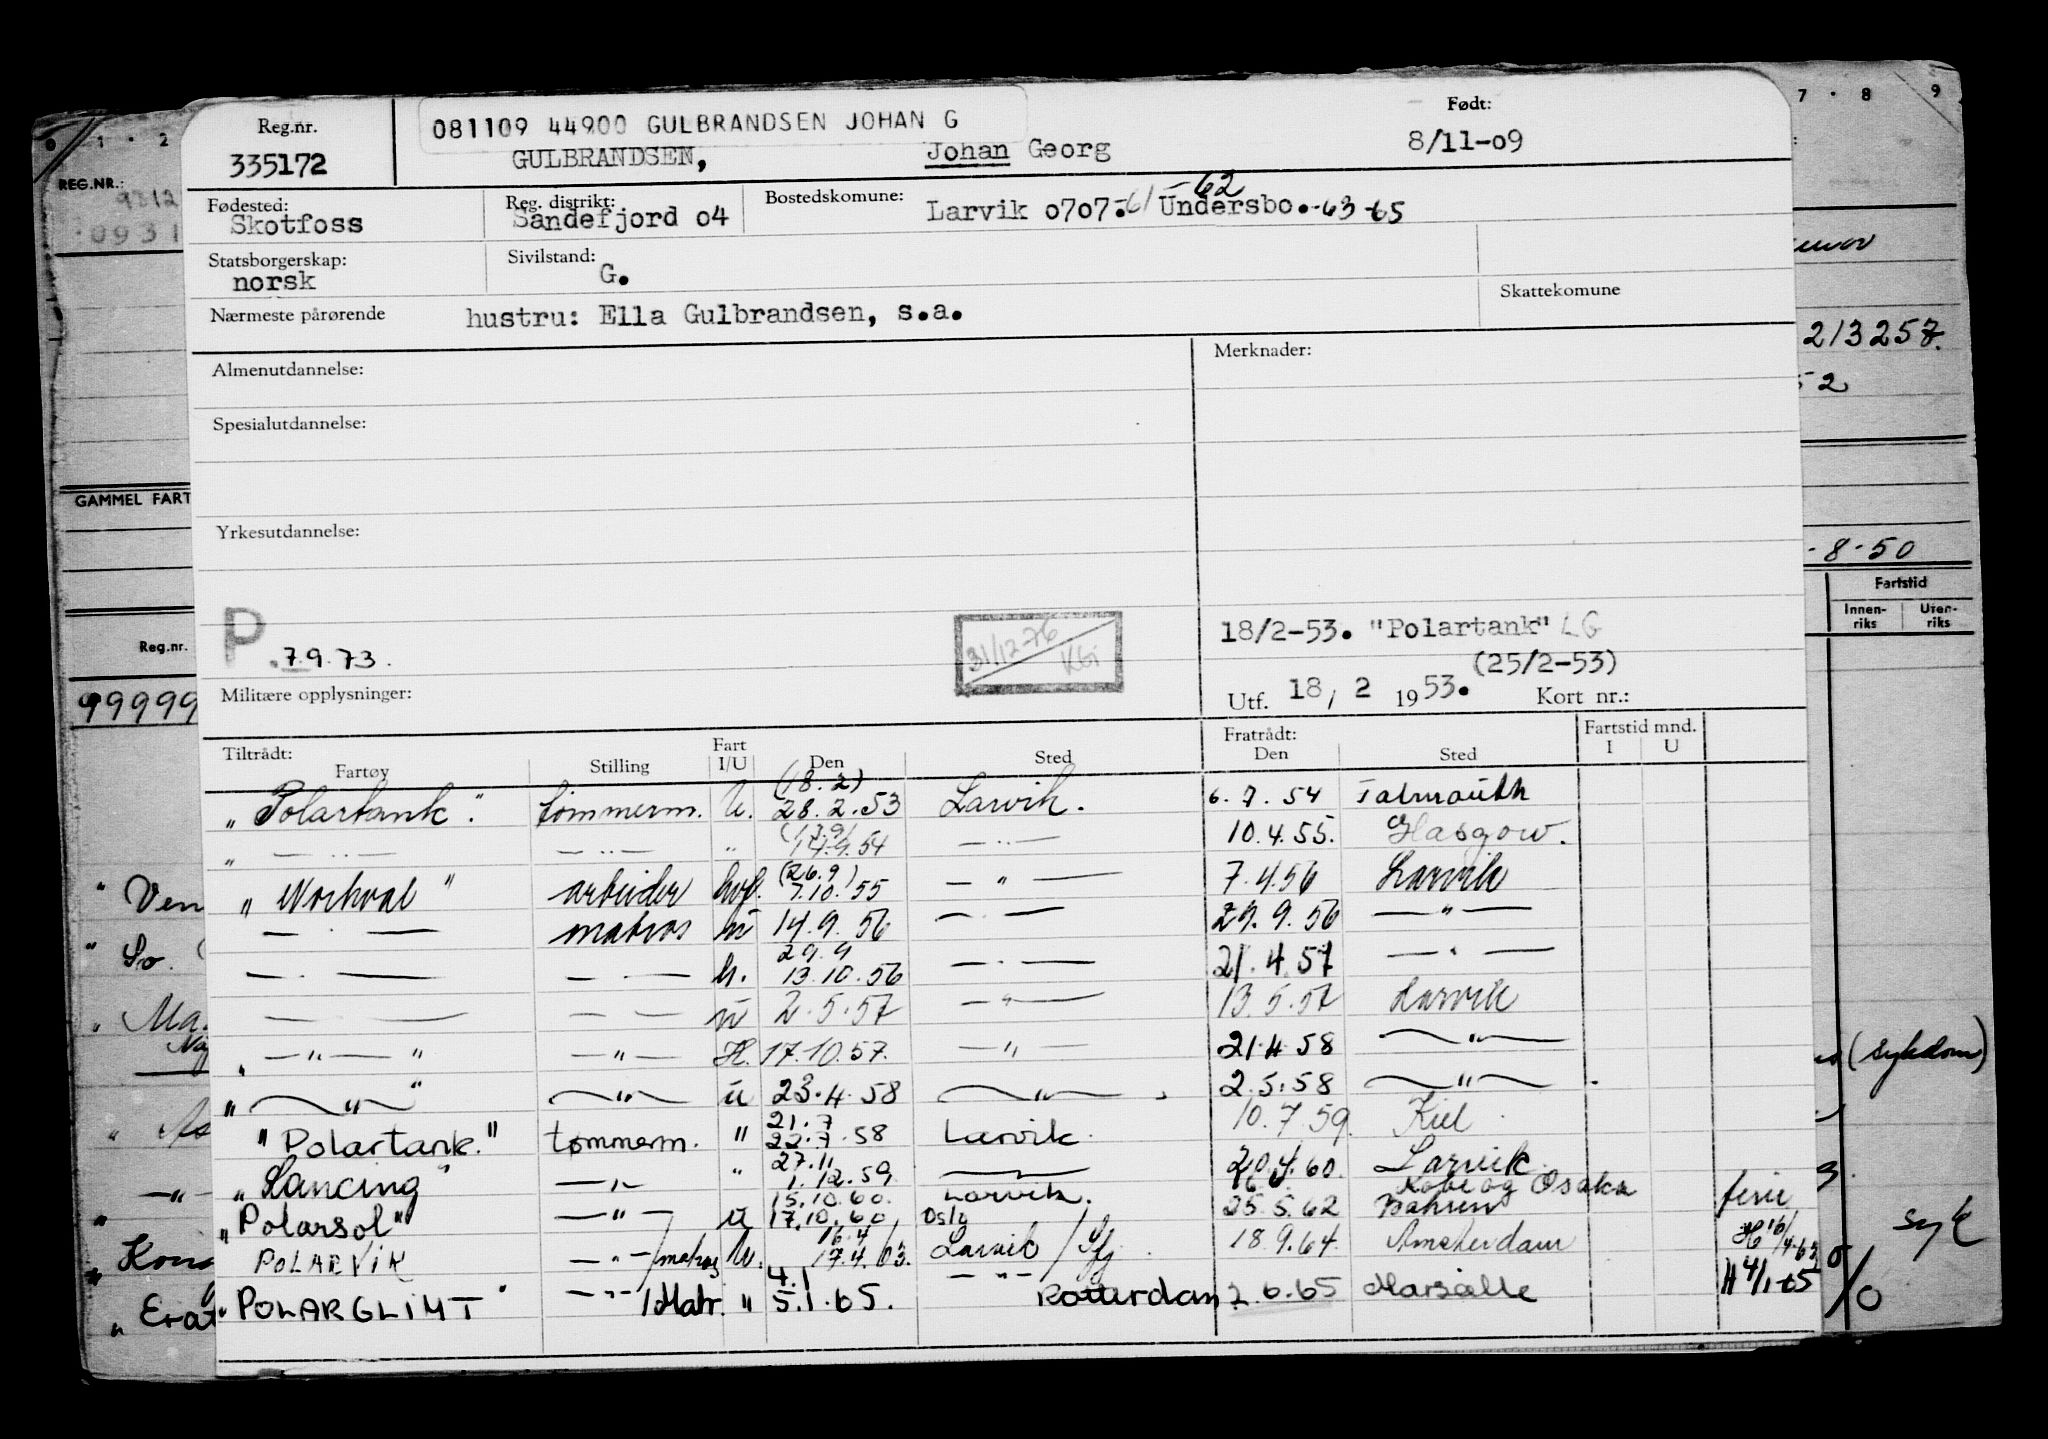 Reg.nr. 335172
081109 44900 GULBRANDSEN JOHAN G
GULBRANDSEN, Johan Georg
Født: 8/11-09
Fødested: Skotfoss
Reg. distrikt: Sandefjord 04
Bostedskomune: Larvik 0707.-61 Undersbo.-62 -63 -65
Statsborgerskap: norsk
Sivilstand: G.
Nærmeste pårørende hustru: Ella Gulbrandsen, s.a.
Skattekomune
Almenutdannelse:
Merknader:
Spesialutdannelse:
Yrkesutdannelse:
P. 7.9.73.
31/12-76 KGi
18/2-53. "Polartank" LG
(25/2-53)
Militære opplysninger:
Utf. 18, 2 1953. Kort nr.:
Tiltrådt: Fartøy Stilling Fart I/U Den Sted Fratrådt: Den Sted Fartstid mnd. I U
"Polartank". tømmerm. U. (18.2) 28.2.53 Larvik. 6.7.54 Falmouth
" — " — — " — " — " — 10.4.55. Glasgow.
"Norhval" arbeider hvf. (26.9) 7.10.55 — " — 7.4.56 Larvik
— " — matros 14.9.56 — " — 29.9.56 — " —
— " — — " — h. 29.9 13.10.56 — " — 21.4.57 — " —
— — — — ü 2.5.57 — " — 13.5.57 Larvik
" — " — " — " — H. 17.10.57. — " — 21.4.58 — " —
" — " — " — " — ü 23.4.58 — " — 2.5.58 — " —
"Polartank." tømmerm. " 21.7 22.7.58 Larvik. 10.7.59. Kiel
"Lancing" — " — " 27.11 1.12.59 — 20.4.60. Larvik.
"Polarsol" — " — ü 15.10.60. 17.10.60 Larvik. Oslo 25.5.62 Kobe og Osaka Bahrein ferie
POLARVIK — " — / matros U. 16.4 17.4./63. Larvik / Sfj. 18.9.64. Amsterdam H 16/4-63
"POLARGLIMT" — " — / Matr. " 4.1 5.1.65. — " — Rotterdam 2.6.65 Marseille H 4/1-65
1 · 2
7 · 8 9
REG.NR.:
9312
0931
213257.
52
GAMMEL FART
-8-50
Fartstid
Innen-riks Uten-riks
Reg.nr.
99999
" Ven
" So.
" Ma.
(sykdom)
— " —
syk
" Kong
" Erat